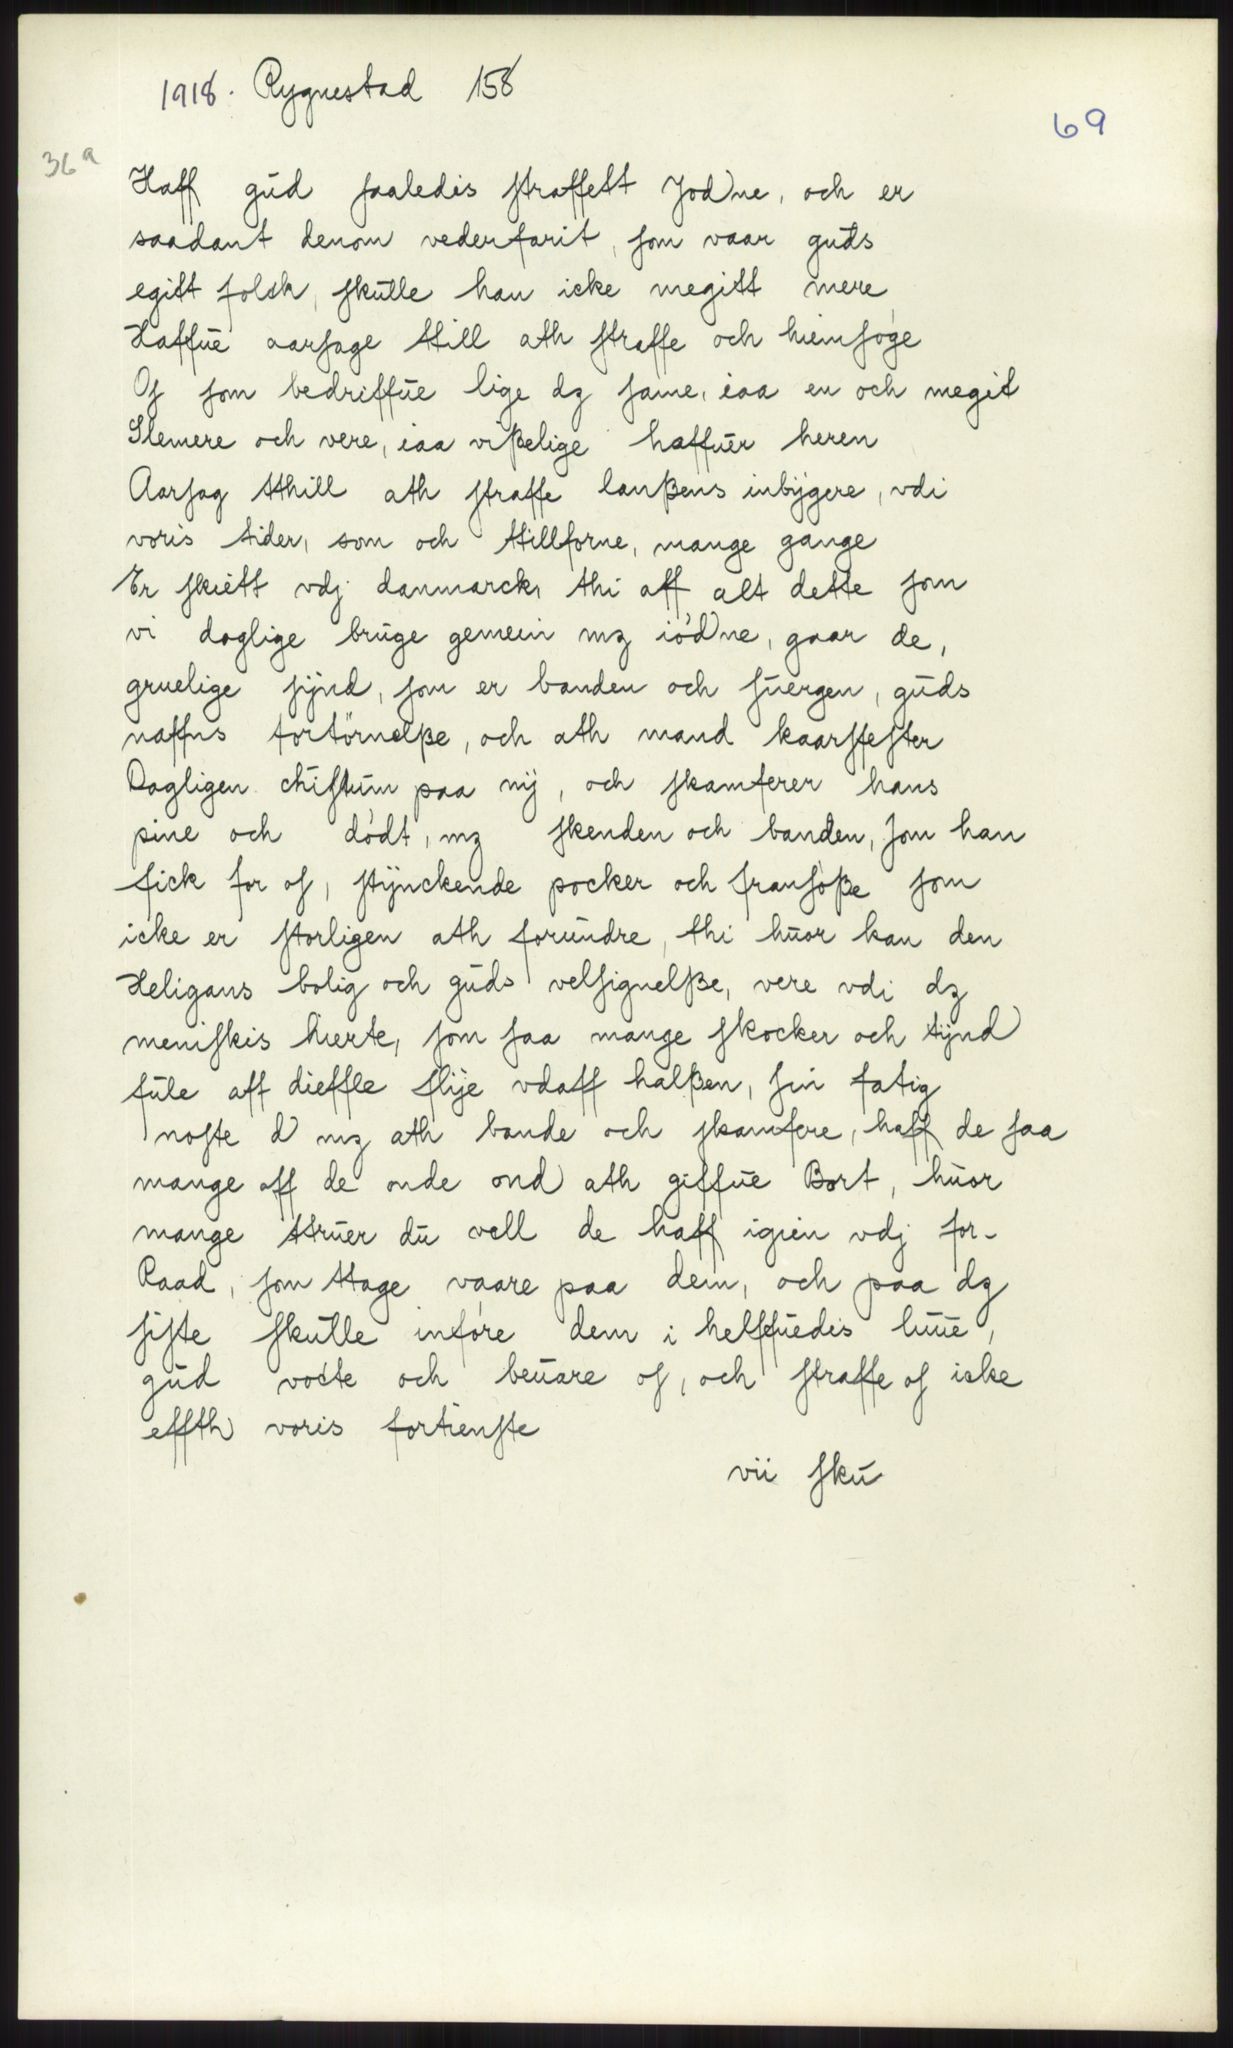 1918. Rygnestad 158
69
36a
Haff gud saaledis straffett Jodne, och er
saadant denom vederfarit, som vaar guds
egitt folsk, skulle han icke megitt mere
Haffue aarsage till ath straffe och hiemsøge
Os som bedriffue lige dz same, iaa en och megit
Slemere och vere, iaa vißelige haffuer heren
Aarsag tthill ath straffe lanßens inbÿgere, vdi
voris tider, som och ttillforne, mange gange
Er skiett vdj danmarck, thi aff alt dette som
vi daglige bruge gemein mz iødne, gaar de,
gruelige sÿnd, som er banden och suergen, guds
naffns fortörnelße, och ath mand kaarsfester
Dagligen chistum paa nÿ, och skamferer hans
pine och dødt, mz skenden och banden, som han
fick for os, stÿnckende pocker och fransoße som
icke er storligen ath forundre, thi huor kan den
Heligans bolig och guds velsignelße, vere vdi dz
meniskis hierte, som saa mange skocker och tÿnd
fule aff dieffle flÿe vdaff halßen, sin fatig
noste d mz ath bande och skamfere, haff de saa
mange aff de onde ond ath giffue Bort, huor
mange ttruer du vell de haff igien vdj for-
Raad, som ttage vaare paa dem, och paa dz
siste skulle infóre dem i helffuedis luue,
gud vocte och beuare os, och straffe os icke
effth voris fortienste
vii sku